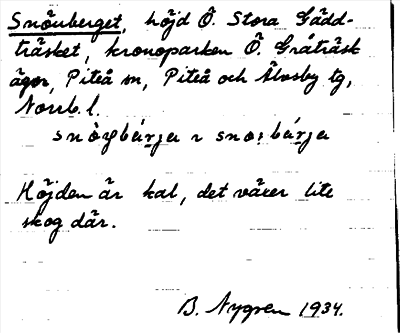 Snöuberget, höjd Ö. Stora Gädd-
träsket, kronoparken Ö. Gråträsk
äger, Piteå sn, Piteå och Älvsby tg,
Norrb. l.
Höjden är kal, det växer lite
skog där.
B. Nygren 1934.